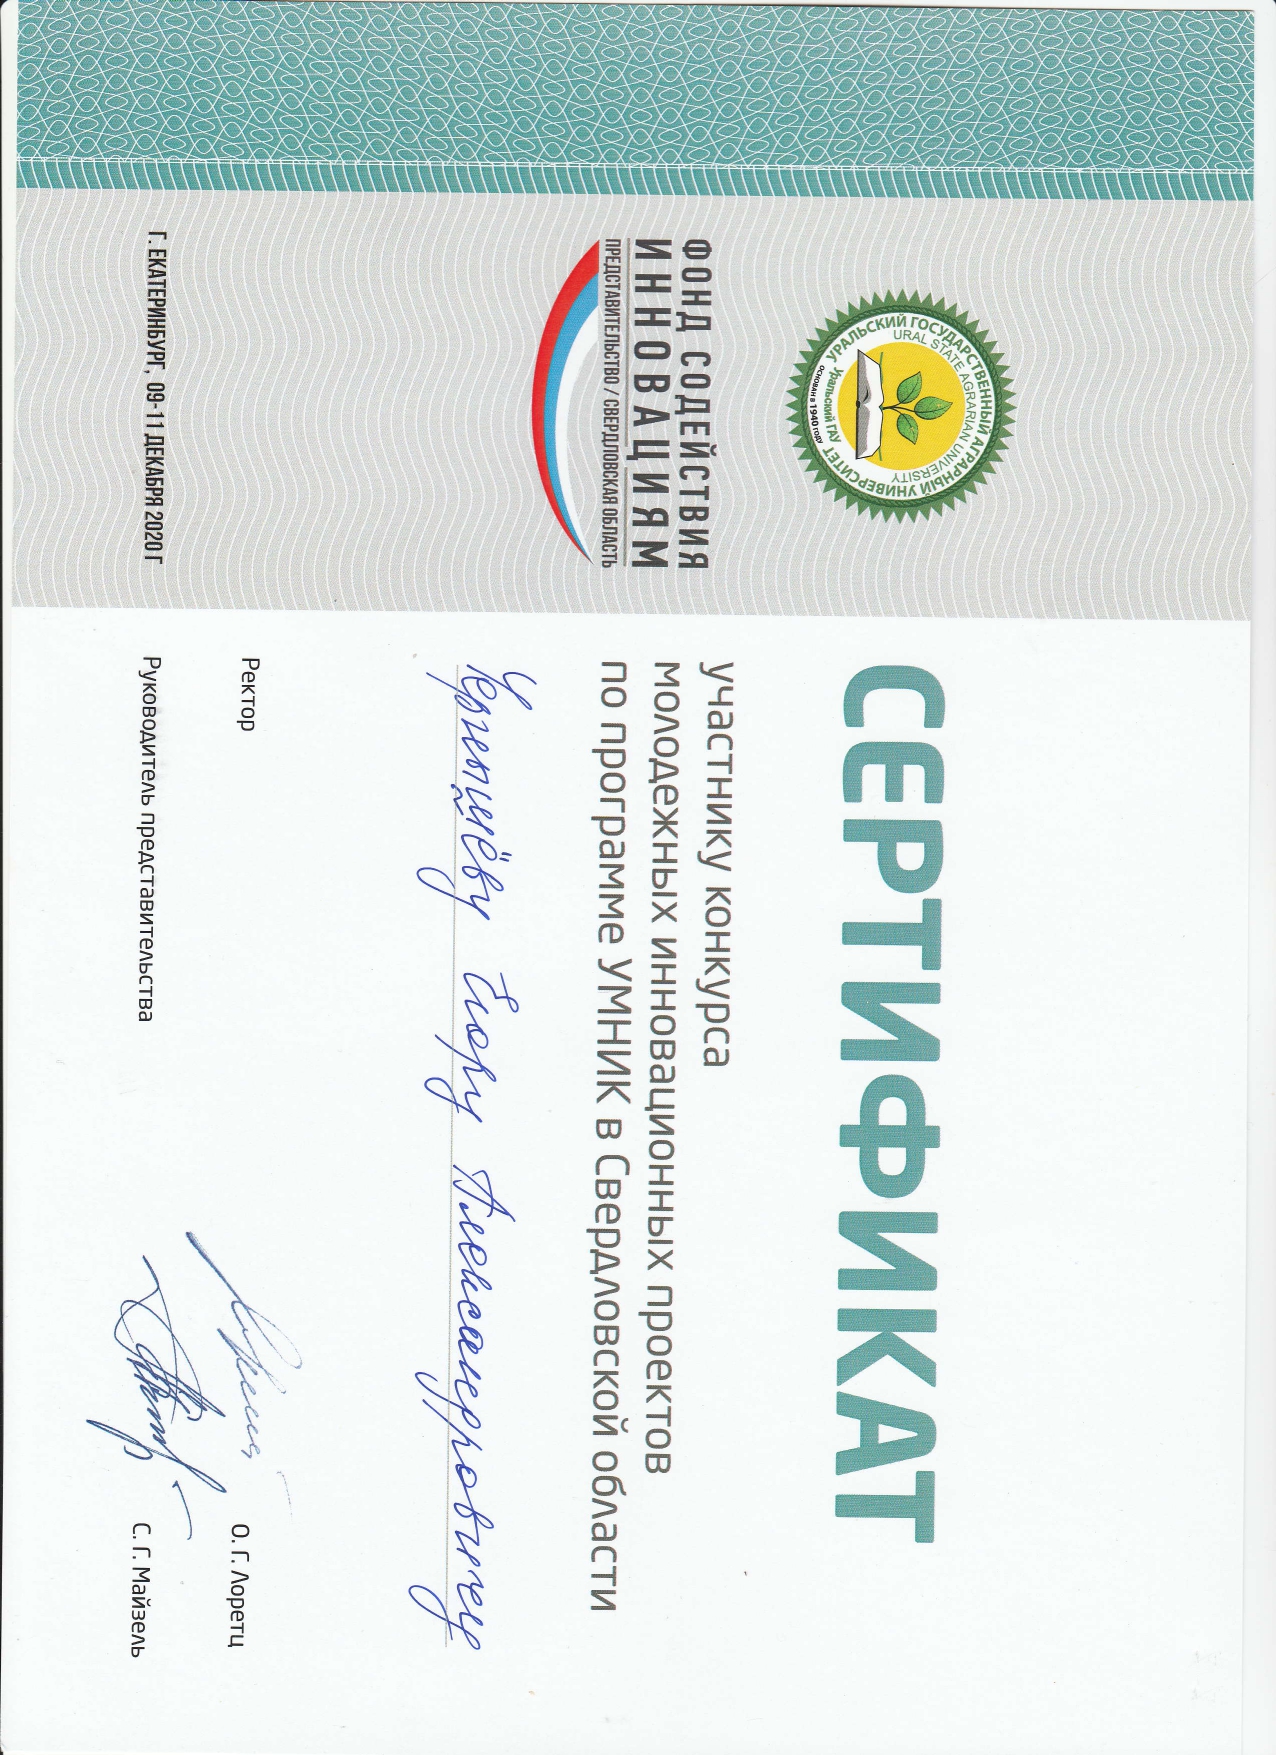 УРАЛЬСКИЙ ГОСУДАРСТВЕННЫЙ АГРАРНЫЙ УНИВЕРСИТЕТ
URAL STATE AGRARIAN UNIVERSITY
Уральский ГАУ
ОСНОВАН В 1940 ГОДУ
ФОНД СОДЕЙСТВИЯ
ИННОВАЦИЯМ
ПРЕДСТАВИТЕЛЬСТВО / СВЕРДЛОВСКАЯ ОБЛАСТЬ
Г. ЕКАТЕРИНБУРГ, 09-11 ДЕКАБРЯ 2020 Г
СЕРТИФИКАТ
участнику конкурса
молодежных инновационных проектов
по программе УМНИК в Свердловской области
Чернышёву Егору Александровичу
Ректор О. Г. Лоретц
Руководитель представительства С. Г. Майзель